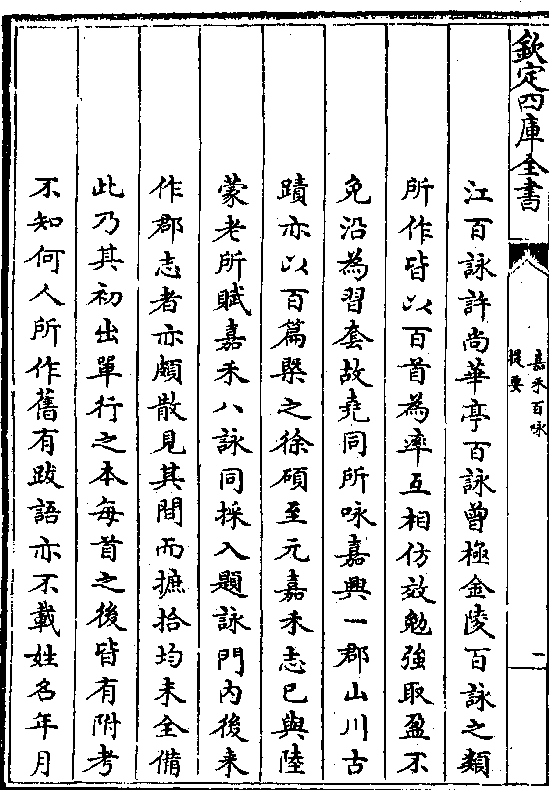 欽定四庫全書
嘉禾百咏
提要
一
江百詠許尚華亭百詠曽極金陵百詠之類
所作皆以百首為率互相仿效勉強取盈不
免沿為習套故堯同所咏嘉興一郡山川古
蹟亦以百篇槩之徐碩至元嘉禾志已與陸
蒙老所賦嘉禾八詠同採入題詠門内後来
作郡志者亦頗散見其間而摭拾均未全備
此乃其初出單行之本每首之後皆有附考
不知何人所作舊有跋語亦不載姓名年月